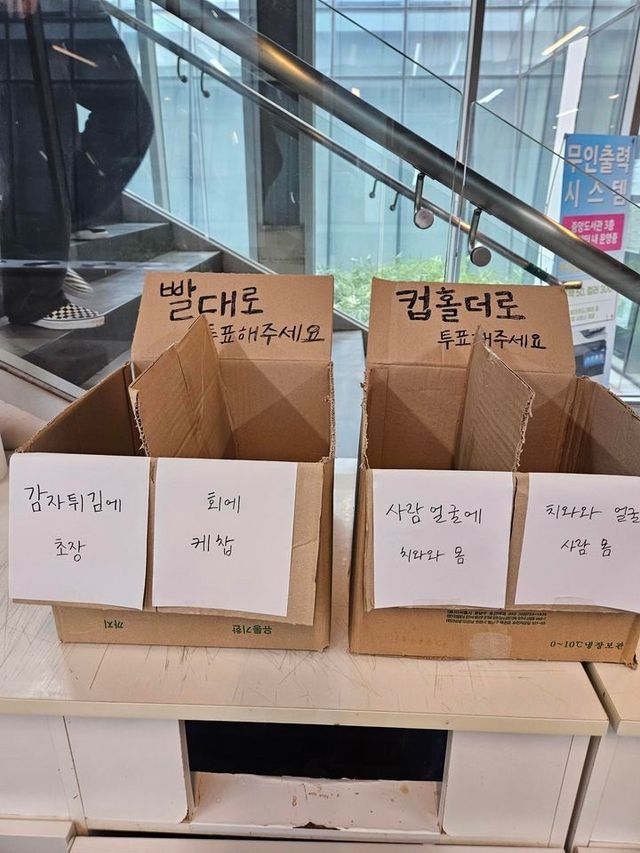 빨대로
투표해주세요
컵홀더로
투표해주세요
감자튀김에
초장
회에
케찹
사람 얼굴에
치와와 몸
치와와 얼굴
사람 몸
까지
유통기한
0~10℃
무인출력
시스템
중앙도서관 3층